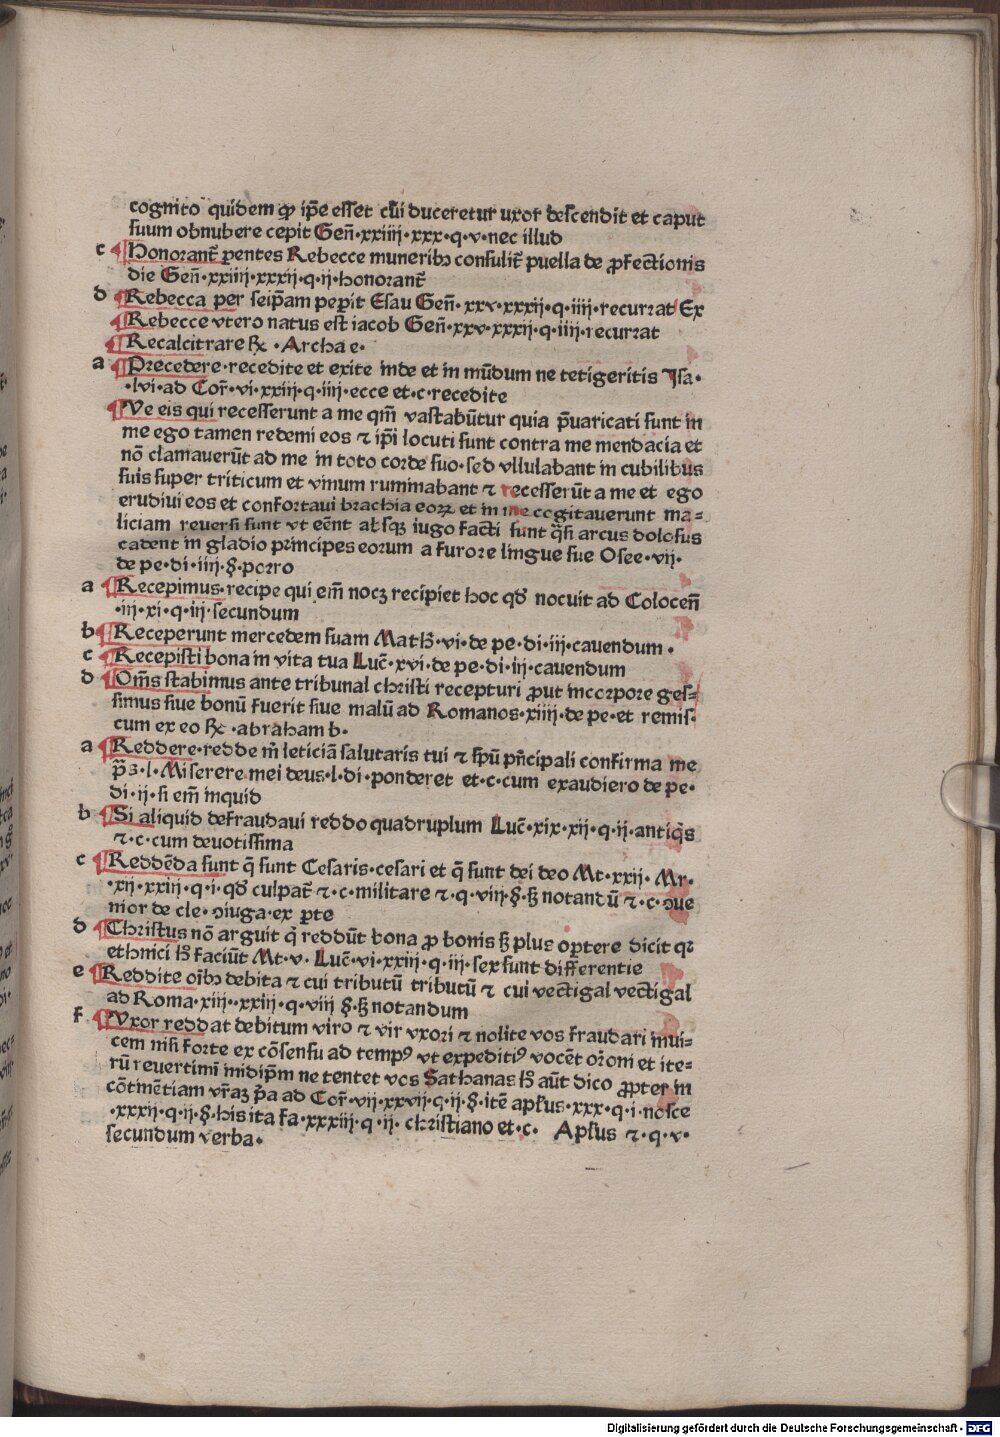 cognito quidem ꝙ ip̃e esset cũi duceretur uxor descendit et caput
suum obnubere cepit Geñ·xxiiij·xxx·q·v·nec illud
c ¶Honorant̃ ꝑentes Rebecce muneribꝫ consulit̃ puella de ꝓfectionis
die Geñ·xxiiij·xxxij·q·ij·honorant̃
d ¶Rebecca per seip̃am peꝑit Esau Geñ·xxv·xxxij·q·iiij·recurrat Ex
¶Rebecce vtero natus est iacob Geñ·xxv·xxxij·q·iiij·recurrat
¶Recalcitrare ℞ ·Archa e·
a ¶Precedere·recedite et exite inde et in mũdum ne tetigeritis Isa·
·lvi·ad Cor̃·vi·xxiij·q·iiij·ecce et·c·recedite
¶Ve eis qui recesserunt a me qm̃ vastabũtur quia p̃uaricati sunt in
me ego tamen redemi eos ⁊ ip̃i locuti sunt contra me mendacia et
nõ clamauerũt ad me in toto corde suo·sed vllulabant in cubilibus
suis super triticum et vinum ruminabant ⁊ recesserũt a me et ego
erudiui eos et confortaui brachia eoꝝ et in me cogitauerunt ma=
liciam reuersi sunt vt eẽnt absqꝫ iugo facti sunt q̃si arcus dolosus
cadent in gladio principes eorum a furore lingue sue Osee·vij·
de pe·di·iiij·§·porro
a ¶Recepimus·recipe qui em̃ nocꝫ recipiet hoc qđ nocuit ad Coloceñ
·iij·xi·q·iij·secundum
b ¶Receperunt mercedem suam Matħ·vi·de pe·di·iij·cauendum·
c ¶Recepisti bona in vita tua Luc̃·xvi·de pe·di·iij·cauendum
d ¶Om̃s stabimus ante tribunal christi recepturi ꝓut incorpore ges=
simus siue bonũ fuerit siue malũ ad Romanos·xiiij·de pe·et remis·
cum ex eo ℞ ·abraham b·
a ¶Reddere·redde m̃ leticiã salutaris tui ⁊ sp̃u pñcipali confirma me
p̃ꝫ·l·Miserere mei deus·l·di·ponderet et·c·cum exaudiero de pe·
di·ij·si em̃ inquid
b ¶Si aliquid defraudaui reddo quadruplum Luc̃·xix·xij·q·ij·antiq̃s
⁊·c·cum deuotissima
c ¶Reddẽda sunt q̃ sunt Cesaris·cesari et q̃ sunt dei deo Mt·xxij· Mr·
·xij·xxiij·q·i·qđ culpat̃ ⁊·c·militare ⁊·q·viij·§·ꝭ notandũ ⁊·c·ꝯue
nior de cle·ꝯiuga·ex ꝑte
d ¶Christus nõ arguit q̃ reddũt bona ꝓ bonis ꝭ plus oꝑtere dicit qꝛ
ethnici lꝫ faciũt Mt·v· Luc̃·vi·xxiij·q·iij·sex sunt differentie
e ¶Reddite oĩbꝫ debita ⁊ cui tributũ tributũ ⁊ cui vectigal vectigal
ad Roma·xiij··xxiij·q·viij §·ꝭ notandum
f ¶Vxor reddat debitum viro ⁊ vir vxori ⁊ nolite vos fraudari inui=
cem nisi forte ex cõsensu ad tempꝰ vt expeditiꝰ vocẽt or̃oni et ite=
rũ reuertimĩ inidip̃m ne tentet vos Sathanas lꝫ aũt dico ꝓpter in
cõtinẽtiam vr̃aꝫ p̃a ad Cor̃·vij·xxvij·q·ij·§·itẽ apl̃us·xxx·q·i·nosce
·xxxij·q·ij·§·his ita fa·xxxiij·q·ij· christiano et·c· Apl̃us ⁊·q·v·
secundum verba·
Digitalisierung gefördert durch die Deutsche Forschungsgemeinschaft - DFG